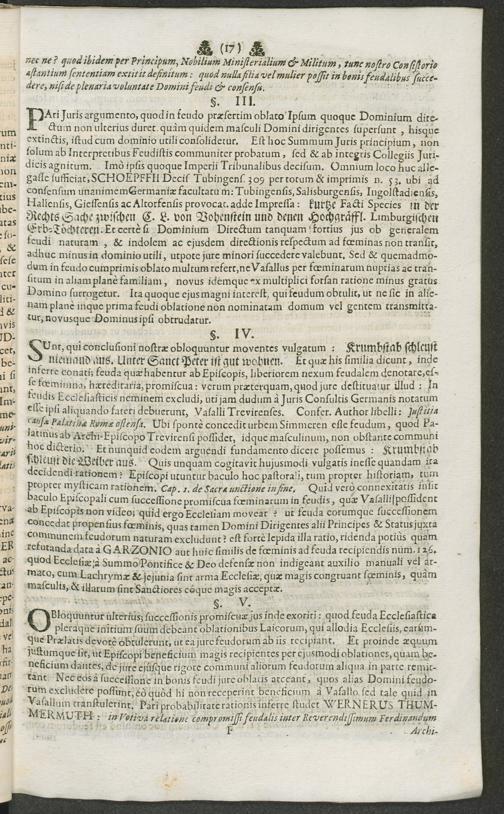 (17)
nec ne? quod ibidem per Principum, Nobilium Ministerialium & Militum, tunc nostro Consistorio
astantium sententiam extitit definitum: quod nulla filia vel mulier possit in bonis feudalibus succe-
dere, nisi de plenaria voluntate Domini feudi & consensu.
§. III.
PAri Juris argumento, quod in feudo præsertim oblato Ipsum quoque Dominium dire-
ctum non ulterius duret, quàm quidem masculi Domini dirigentes supersunt, hisque
extinctis, istud cum dominio utili consolidetur. Est hoc Summum Juris principium, non
solum ab Interpretibus Feudistis communiter probatum, sed & ab integris Collegiis Juri-
dicis agnitum. Imò ipsis quoque Imperii Tribunalibus decisum. Omnium loco huc alle-
gasse sufficiat, SCHOEPFFII Decis Tubingens. 309 per totum & imprimis n. 53. ubi ad
consensum unanimem Germaniæ facultatum m: Tubingensis, Salisburgensis, Ingolstadiensis,
Haliensis, Giessensis ac Altorfensis provocat. adde Impressa: kurtze Facti Species in der
Rechts Sache zwischen C. L. von Vohenstein und denen Hochgräffl. Limburgischen
Erb-Töchteren. Et certè si Dominium Directum tanquam fortius jus ob generalem
feudi naturam, & indolem ac ejusdem directionis respectum ad fœminas non transit,
adhuc minus in dominio utili, utpote jure minori succedere valebunt. Sed & quemadmo-
dum in feudo cumprimis oblato multum refert, ne Vasallus per fœminarum nuptias ac tran-
situm in aliam planè familiam, novus idemque ex multiplici forsan ratione minus gratus
Domino surrogetur. Ita quoque ejus magni interest, qui feudum obtulit, ut ne sic in alie-
nam planè inque prima feudi oblatione non nominatam domum vel gentem transmitta-
tur, novusque Dominus ipsi obtrudatur.
§. IV.
SUnt, qui conclusioni nostræ obloquuntur moventes vulgatum: Krumbstab schleust
niemand aus. Unter Sanct Peter ist gut wohnen. Et quæ his similia dicunt, inde
inferre conati; feuda quæ habentur ab Episcopis, liberiorem nexum feudalem denotare, es-
se fœminina, hæreditaria, promiscua: verum præterquam, quod jure destituatur illud: In
feudis Ecclesiasticis neminem excludi, uti jam dudum à Juris Consultis Germanis notatum
esse ipsi aliquando fateri debuerunt, Vasalli Trevirenses. Confer. Author libelli: Justitia
causæ Palatinæ Romæ ostensa. Ubi spontè concedit urbem Simmeren esse feudum, quod Pa-
latinus ab Archi-Episcopo Trevirensi possidet, idque masculinum, non obstante communi
hoc dicterio. Et nunquid eodem arguendi fundamento dicere possemus: Krumbstab
schleust die Weiber aus. Quis unquam cogitavit hujusmodi vulgatis inesse quandam ita
decidendi rationem? Episcopi utuntur baculo hoc pastorali, tum propter historiam, tum
propter mysticam rationem. Cap. 1. de Sacra unctione in fine, Quid verò connexitatis insit
baculo Episcopali cum successione promiscua fœminarum in feudis, quæ Vasalli possident
ab Episcopis non video; quid ergo Ecclesiam moveat? ut feuda corumque successionem
concedat propensius fœminis, quas tamen Domini Dirigentes alii Principes & Status juxta
communem feudorum naturam excludunt? est fortè lepida illa ratio, ridenda potiùs quam
refutanda data à GARZONIO aut huic similis de fœminis ad feuda recipiendis num. 126.
quod Ecclesiæ, à Summo Pontifice & Deo defensæ non indigeant auxilio manuali vel ar-
mato, cum Lachrymæ & jejunia sint arma Ecclesiæ, quæ magis congruant fœminis, quàm
masculis, & illarum sint Sanctiores eóque magis acceptæ.
§. V.
OBloquuntur ulterius, successionis promiscuæ jus inde exoriri: quod feuda Ecclesiastica
pleraque initium suum debeant oblationibus Laicorum, qui allodia Ecclesiis, earum-
que Prælatis devotè obtulerunt, ut ea jure feudorum ab iis recipiant. Et proinde æquum
justumque sit, ut Episcopi beneficium magis recipientes per ejusmodi oblationes, quàm be-
neficium dantes, de jure ejusque rigore communi aliorum feudorum aliqua in parte remit-
tant. Nec eos à successione in bonis feudi jure oblatis arceant, quos alias Domini feudo-
rum excludere possunt, eò quòd hi non receperint beneficium à Vasallo sed tale quid in
Vasallum transtulerint. Pari probabilitate rationis inferre studet WERNERUS THUM-
MERMUTH: in Votiva relatione compromissi feudalis inter Reverendissimum Ferdinandum
F
Archi-